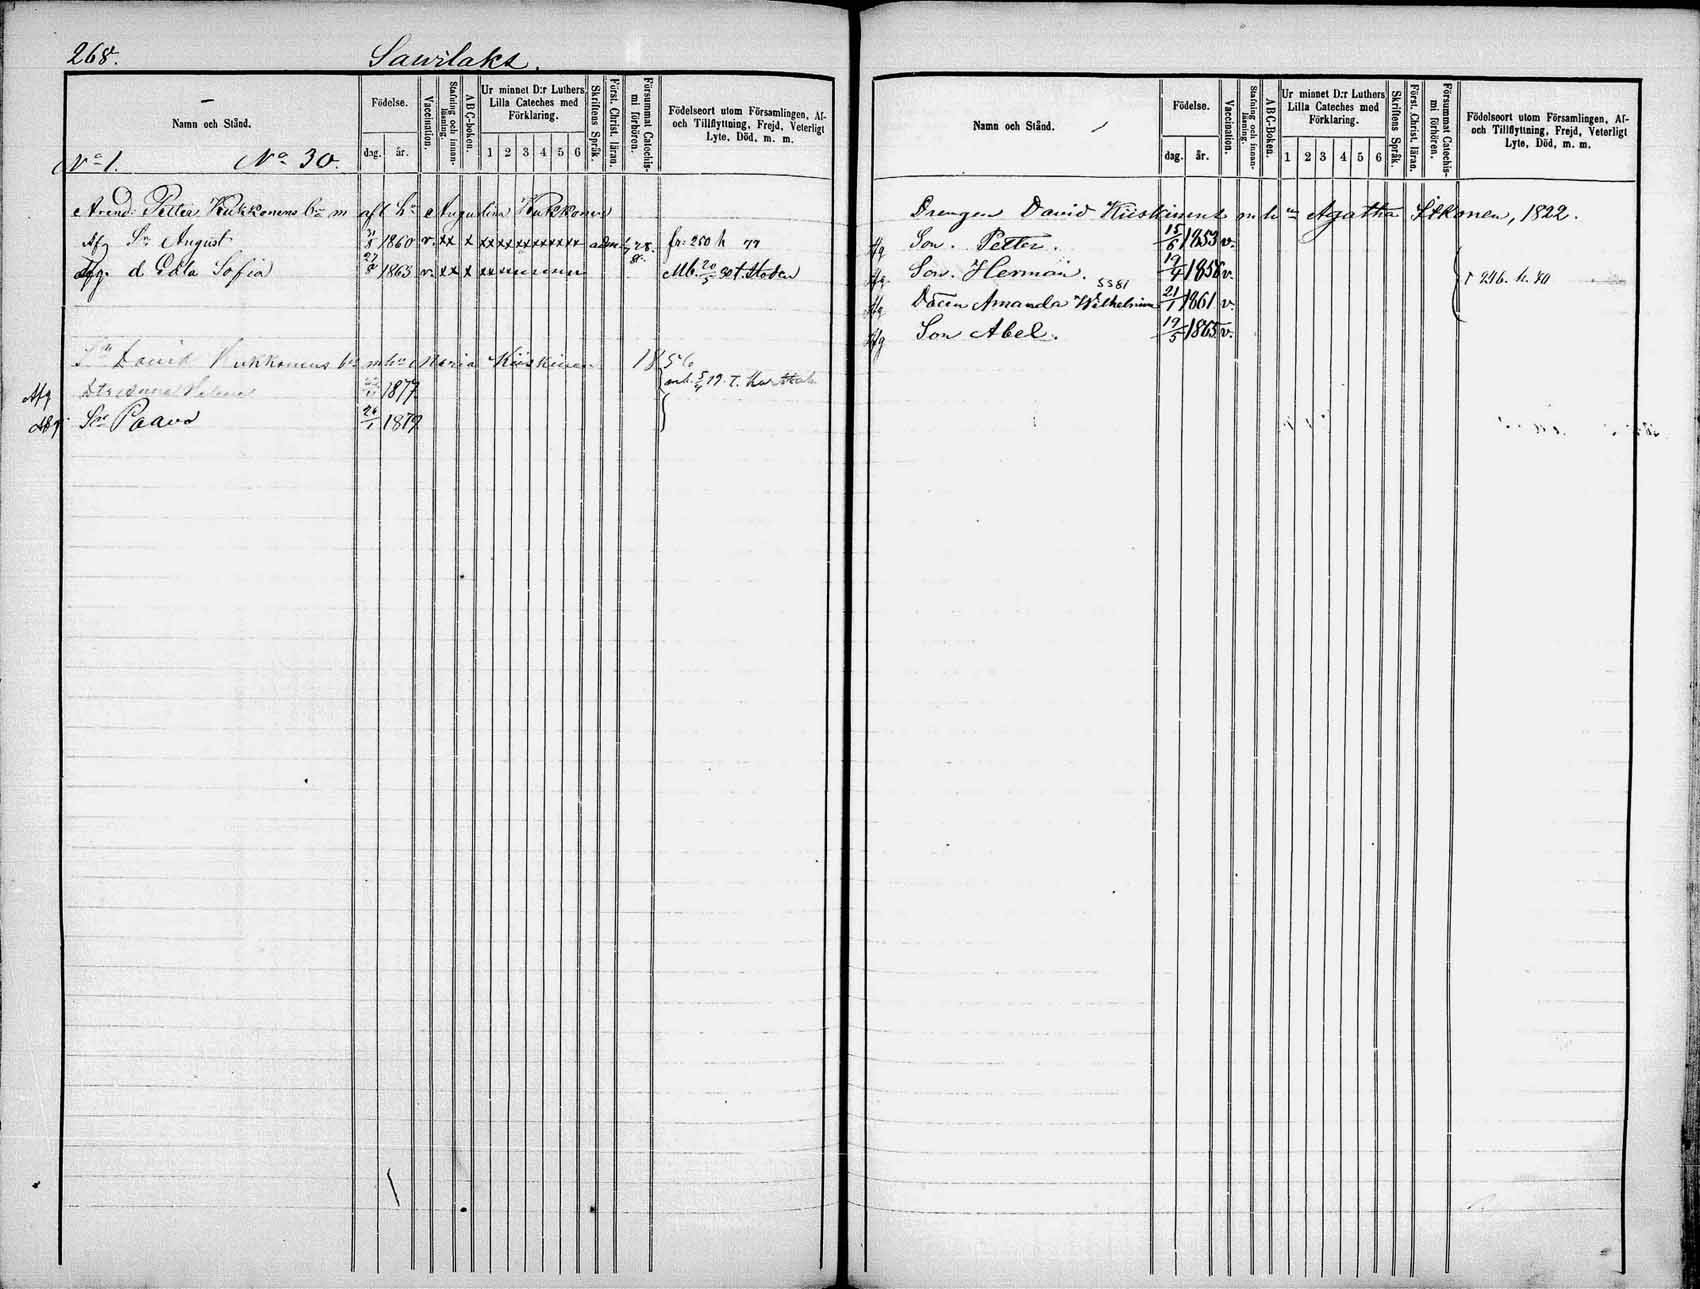 268.
Sawilaks.
Namn och Stånd.
Födelse.
dag. år.
Vaccination.
Stafning och innanläsning.
ABC-boken.
Ur minnet D:r Luthers Lilla Cateches med Förklaring.
1 2 3 4 5 6
Skriftens Språk.
Först. Christ. läran.
Försummat Catechismi förhören.
Födelseort utom Församlingen, Af- och Tillflyttning, Frejd, Veterligt Lyte, Död, m. m.
No 1. No 30.
Arend: Petter Kukkonens bn m afl hu Augustina Kukkonen
Afg Sn August 1860 v. xx x xxxxxxxxxxx adm. fr: 250 h 77
Afg. d Edla Sofia 27 1863 v. xx x Mb. 20/5 80 t. Staden
Sn David Kukkonens bn m hu Maria Kiiskinen 1856
Afg 1877
Afg Sn Paavo 26/1 1879
Namn och Stånd.
Födelse.
dag. år.
Vaccination.
Stafning och innanläsning.
ABC-Boken.
Ur minnet D:r Luthers Lilla Cateches med Förklaring.
1 2 3 4 5 6
Skriftens Språk.
Först. Christ. läran.
Försummat Catechismi förhören.
Födelseort utom Församlingen, Af- och Tillflyttning, Frejd, Veterligt Lyte, Död, m. m.
Drengen David Kiiskinens m h un Agatha Itkonen, 1822.
Afg Son. Petter. 15/6 1853 v.
Afg Son. Herman. 19/4 1858 v. 246. h. 80
5381
Afg Dåtren Amanda Wilhelmina 21/1 1861 v.
Afg Son Abel. 19/5 1865 v.